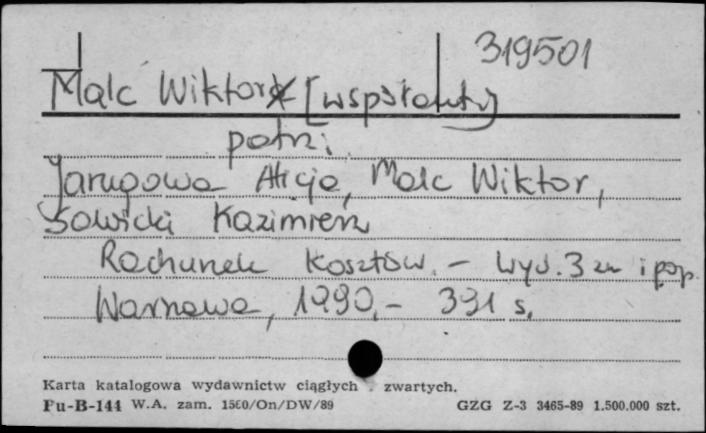 319501
Malc Wiktor [współaut.]
patrz:
Jarugowa Alicja, Malc Wiktor,
Sawicki Kazimierz
Rachunek kosztów. - Wyd. 3 zm i pop.
Warszawa, 1990, - 391 s.
Karta katalogowa wydawnictw ciągłych . zwartych.
Pu-B-144 W.A. zam. 1560/On/DW/89 GZG Z-3 3465-89 1.500.000 szt.